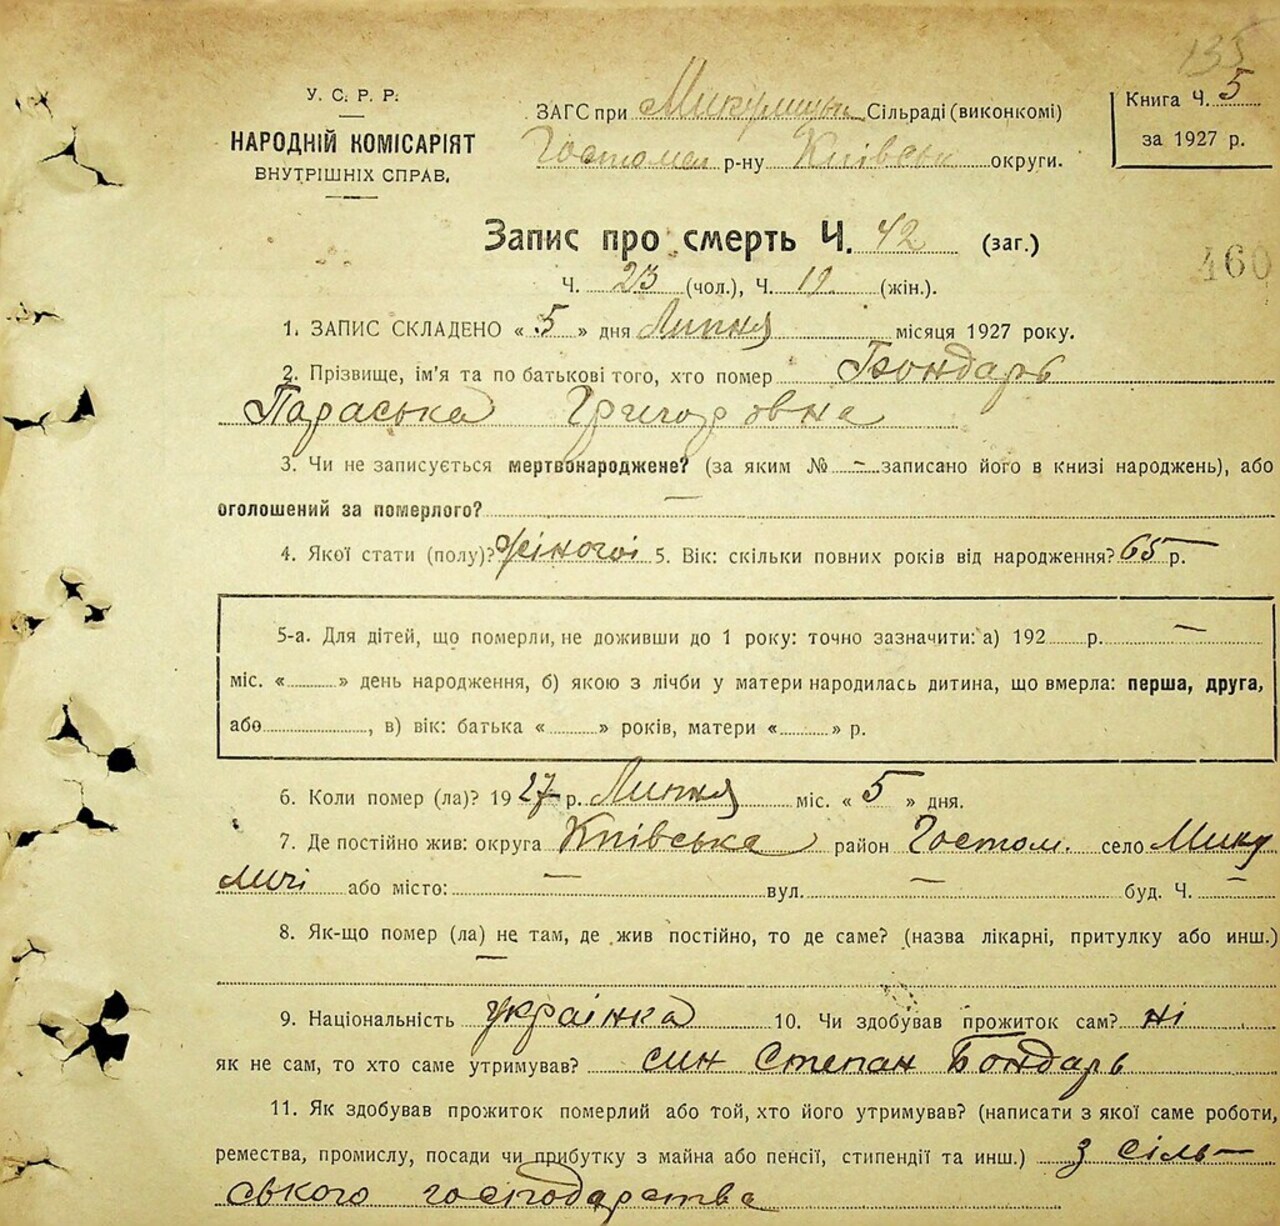 135
У. С. Р. Р.
НАРОДНІЙ КОМІСАРІЯТ
ВНУТРІШНІХ СПРАВ.
ЗАГС при Сільраді (виконкомі)
Гостомел р-ну Київськ округи.
Книга Ч. 5
за 1927 р.
Запис про смерть Ч. 42 (заг.)
460
Ч. 23 (чол.), Ч. 19 (жін.).
1. ЗАПИС СКЛАДЕНО « 5 » дня Липня місяця 1927 року.
2. Прізвище, ім'я та по батькові того, хто помер Бондарь
Параська Григоровна
3. Чи не записується мертвонароджене? (за яким № – записано його в книзі народжень), або
оголошений за померлого? –
4. Якої стати (полу)? жіночоі 5. Вік: скільки повних років від народження? 65 р.
5-а. Для дітей, що померли, не доживши до 1 року: точно зазначити: а) 192 р. –
міс. « » день народження, б) якою з лічби у матери народилась дитина, що вмерла: перша, друга,
або , в) вік: батька « » років, матери « » р.
6. Коли помер (ла)? 1927 р. Липня міс. « 5 » дня.
7. Де постійно жив: округа Київська район Гостом. село Мику
личі або місто: – вул. – буд. Ч. –
8. Як-що помер (ла) не там, де жив постійно, то де саме? (назва лікарні, притулку або инш.)
–
9. Національність украінка 10. Чи здобував прожиток сам? ні
як не сам, то хто саме утримував? син Степан Бондарь
11. Як здобував прожиток померлий або той, хто його утримував? (написати з якої саме роботи,
ремества, промислу, посади чи прибутку з майна або пенсії, стипендії та инш.) з сіль–
ського господарства